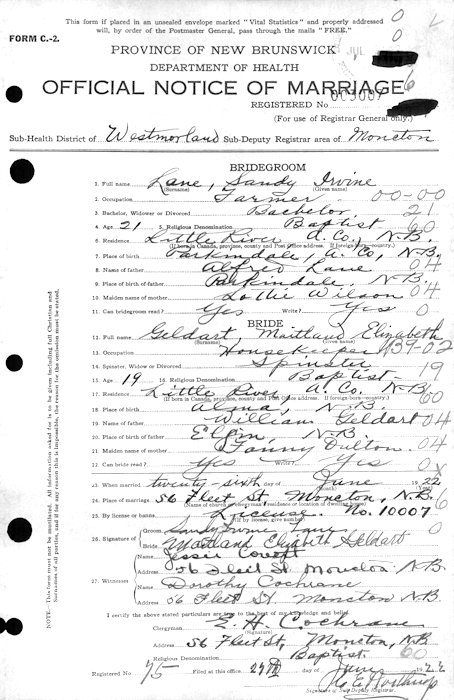 This form if placed in an unsealed envelope marked "Vital Statistics" and properly addressed
will, by order of the Postmaster General, pass through the mails "FREE."
FORM C.-2.
PROVINCE OF NEW BRUNSWICK
DEPARTMENT OF HEALTH
OFFICIAL NOTICE OF MARRIAGE
REGISTERED No. 003007
(For use of Registrar General only.)
Sub-Health District of Westmorland Sub-Deputy Registrar area of Moncton
BRIDEGROOM
1. Full name Lane, Sandy Irvine
(Surname) (Given name)
2. Occupation Farmer 00-00
3. Bachelor, Widower or Divorced Bachelor 21
4. Age 21 5. Religious Denomination Baptist 60
6. Residence Little River A. Co., N.B.
(If born in Canada, province, county and Post Office address. If foreign-born—country.)
7. Place of birth Parkindale, A. Co, N.B.
8. Name of father Alfred Lane 04
9. Place of birth of father Parkindale, N.B.
10. Maiden name of mother Lottie Wilson 04
11. Can bridegroom read? Yes Write? Yes 0
BRIDE
12. Full name Geldart, Maitland Elizabeth
(Surname) (Given name)
13. Occupation Housekeeper 439-02
14. Spinster, Widow or Divorced Spinster 19
15. Age 19 16. Religious Denomination Baptist
17. Residence Little River, A. Co. N.B. 60
(If born in Canada, province, county and Post Office address. If foreign-born—country.)
18. Place of birth Alma, N.B.
19. Name of father William Geldart 04
20. Place of birth of father Elgin, N.B.
21. Maiden name of mother Fanny Dulton 04
22. Can bride read? Yes Write? Yes
23. When married twenty-sixth June 1922
(Month) (Year)
24. Place of marriage 56 Fleet St, Moncton, N.B. 6
(Name of church or street, and number of residence or location of dwelling)
25. By license or banns License No. 10007
(If by license, give number)
26. Signature of Groom Sandy Irvine Lane
Bride Maitland Elizabeth Geldart 0
27. Witnesses Jessie
Address 56 Fleet St. Moncton N.B.
Dorothy Cochrane
Address 56 Fleet St, Moncton N.B.
I certify the above stated particulars are true to the best of my knowledge and belief.
Clergyman E. H. Cochrane
(Signature)
Address 56 Fleet St, Moncton, N.B
Religious Denomination Baptist 60
Registered No. 75 Filed at this office 27th June 1922
Signature of Sub-Deputy Registrar
NOTE.—This form must not be mutilated. All information asked for is to be given including full Christian and
Surnames of all parties, (and if for any reason this is impossible, the reason for the omission must be stated.